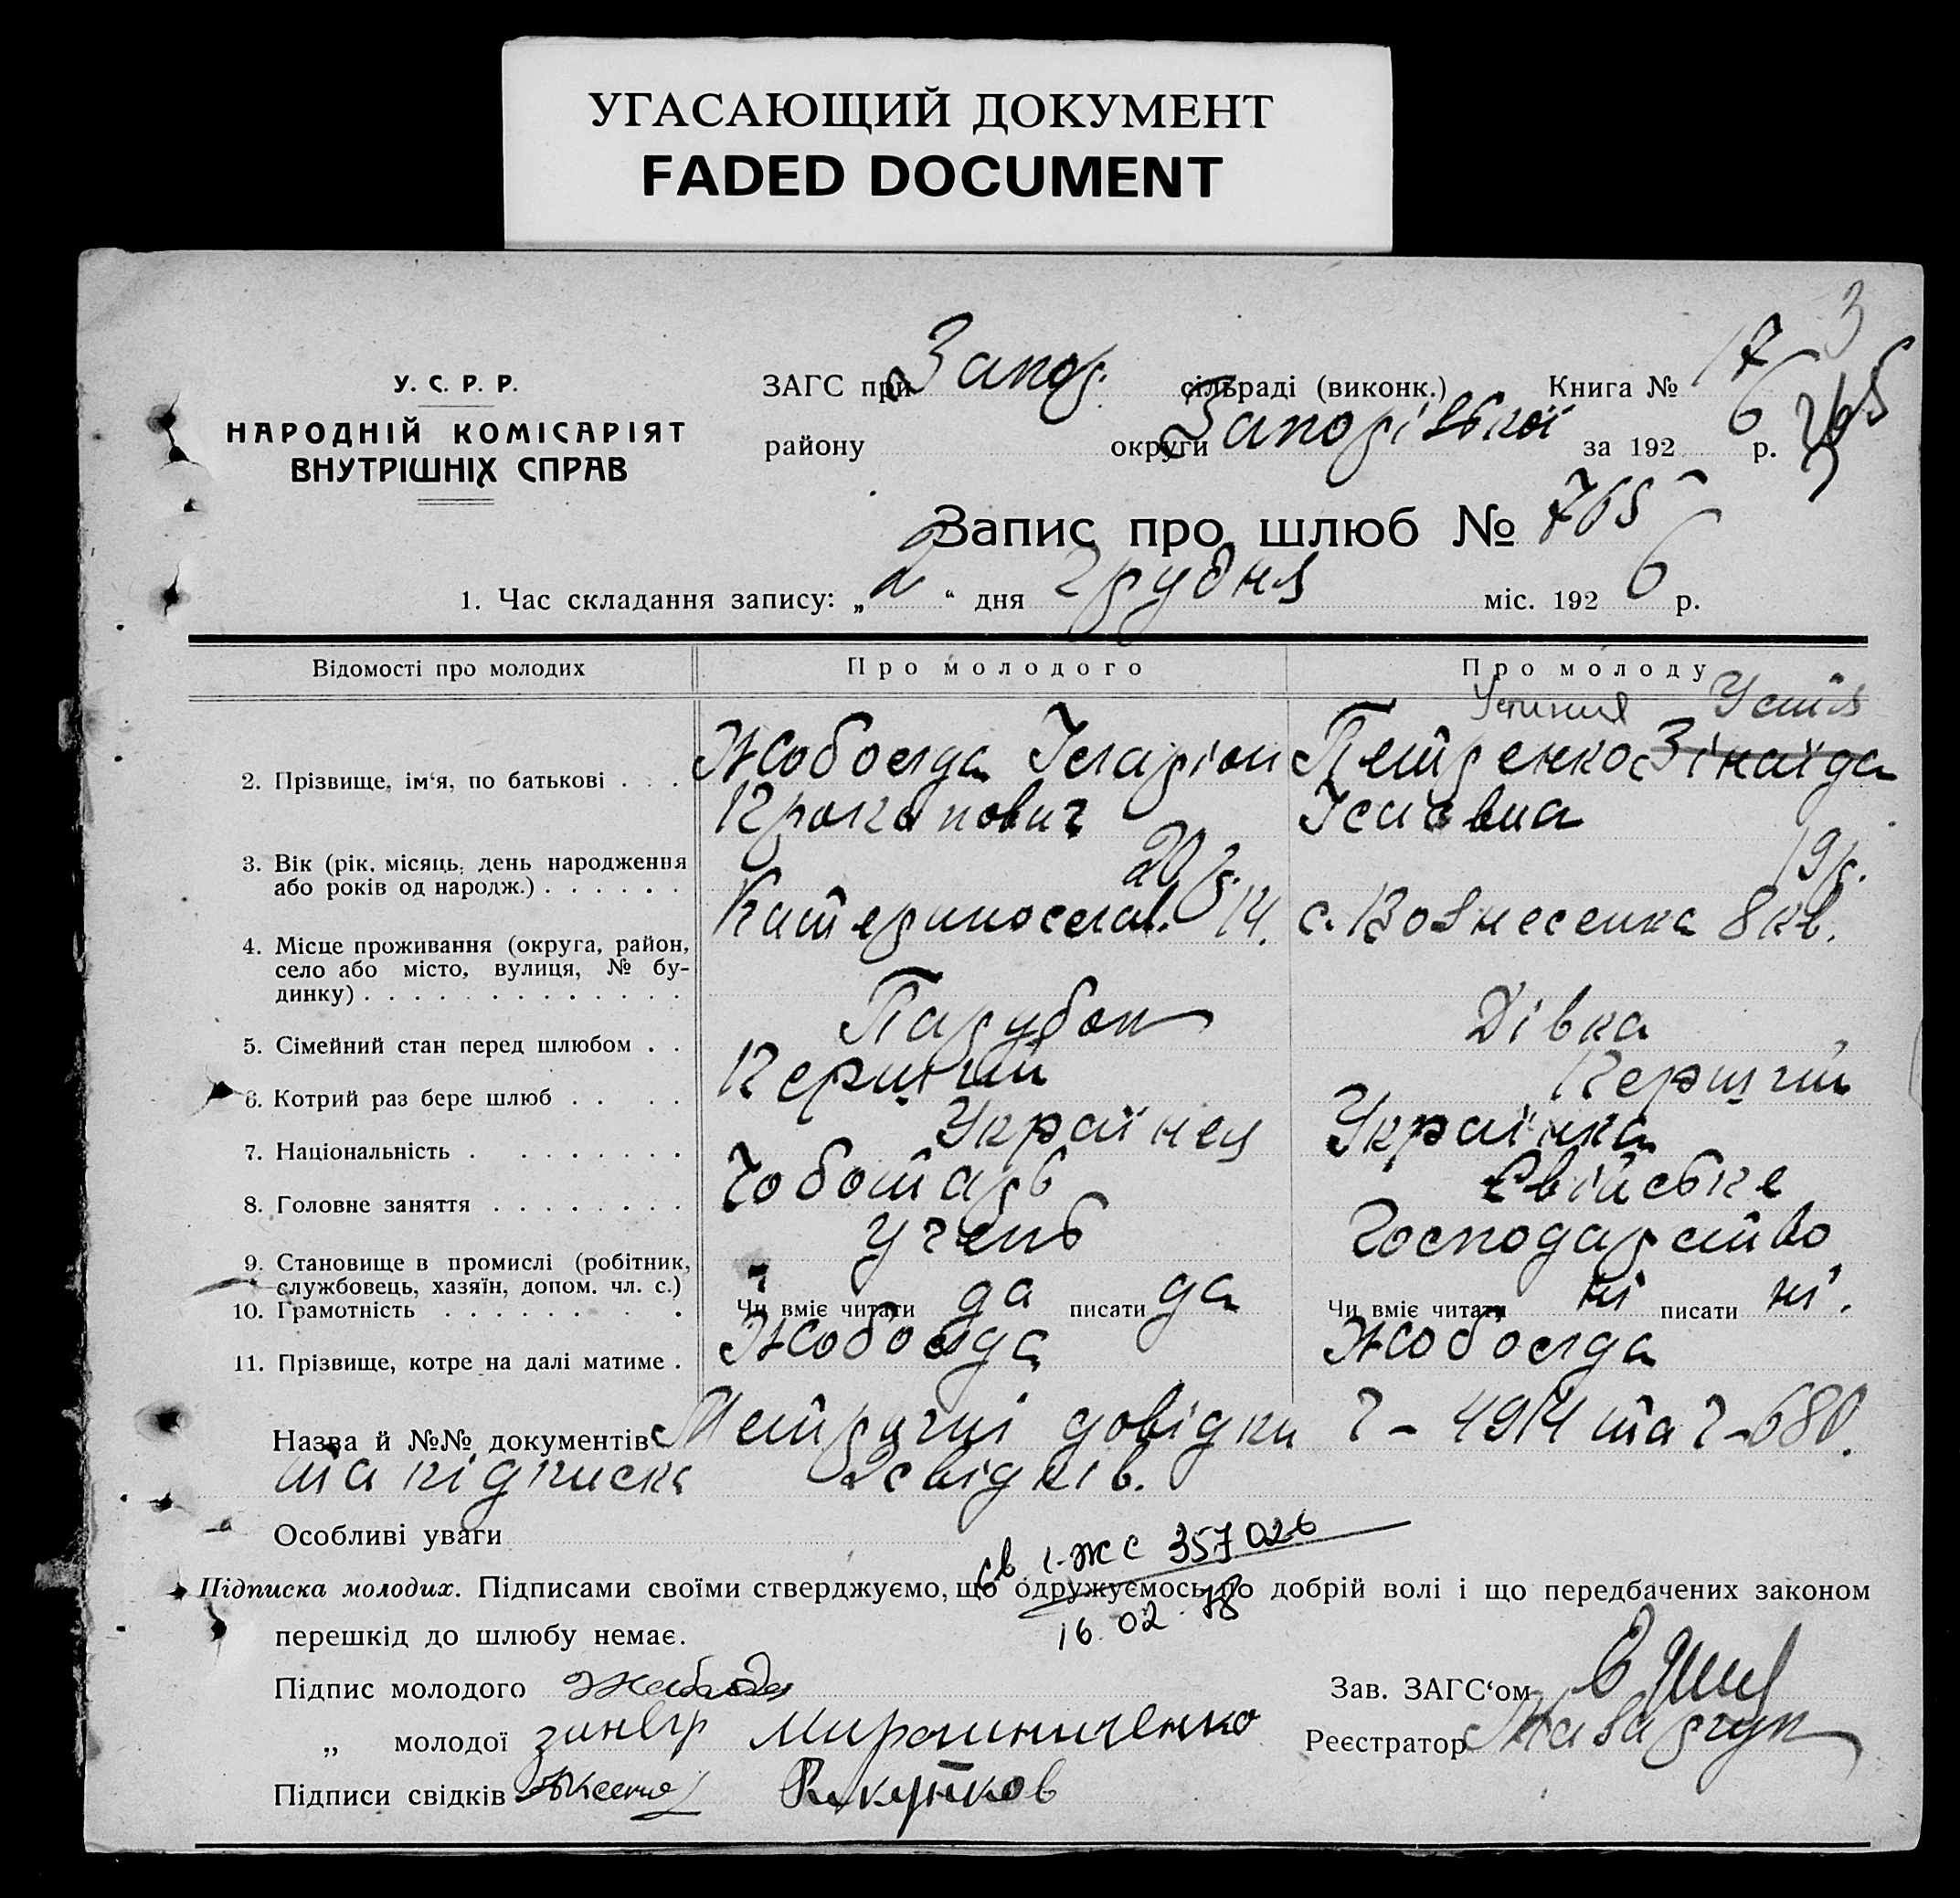 УГАСАЮЩИЙ ДОКУМЕНТ
FADED DOCUMENT
3
У. С. Р. Р.
НАРОДНІЙ КОМІСАРІЯТ
ВНУТРІШНІХ СПРАВ
ЗАГС при Запор. сільраді (виконк.) Книга № 17
району округи Запорізької за 192 6 р.
Запис про шлюб № 765
1. Час складання запису: „ 2 “ дня Грудня міс. 192 6 р.
Відомості про молодих Про молодого Про молоду
Устинія Устія
2. Прізвище, ім‘я, по батькові Жобоєда Іларіон Петренко Зінаїда
Ісаєвна
3. Вік (рік, місяць, день народження або років од народж.) 20 р. 19 р.
4. Місце проживання (округа, район, село або місто, вулиця, № будинку) Катеринослав. 14. с. Вознесенка 8 кв.
5. Сімейний стан перед шлюбом Парубок Дівка
6. Котрий раз бере шлюб Перший Перший
7. Національність Українец Українка
8. Головне заняття Чоботарь Свійське
9. Становище в промислі (робітник, службовець, хазяїн, допом. чл. с.) учень Господарство
10. Грамотність Чи вміє читати да писати да Чи вміє читати ні писати ні.
11. Прізвище, котре на далі матиме Жобоєда Жобоєда
Назва й №№ документів Метричні довідки Ч - 4914 та Ч - 680.
та підписка 2 свідків.
Особливі уваги
св I-ЖС 357026
Підписка молодих. Підписами своїми стверджуємо, що одружуємось по добрій волі і що передбачених законом
перешкід до шлюбу немає.
16.02.78
Підпис молодого Зав. ЗАГС‘ом
„ молодої Мирошниченко Реєстратор
Підписи свідків